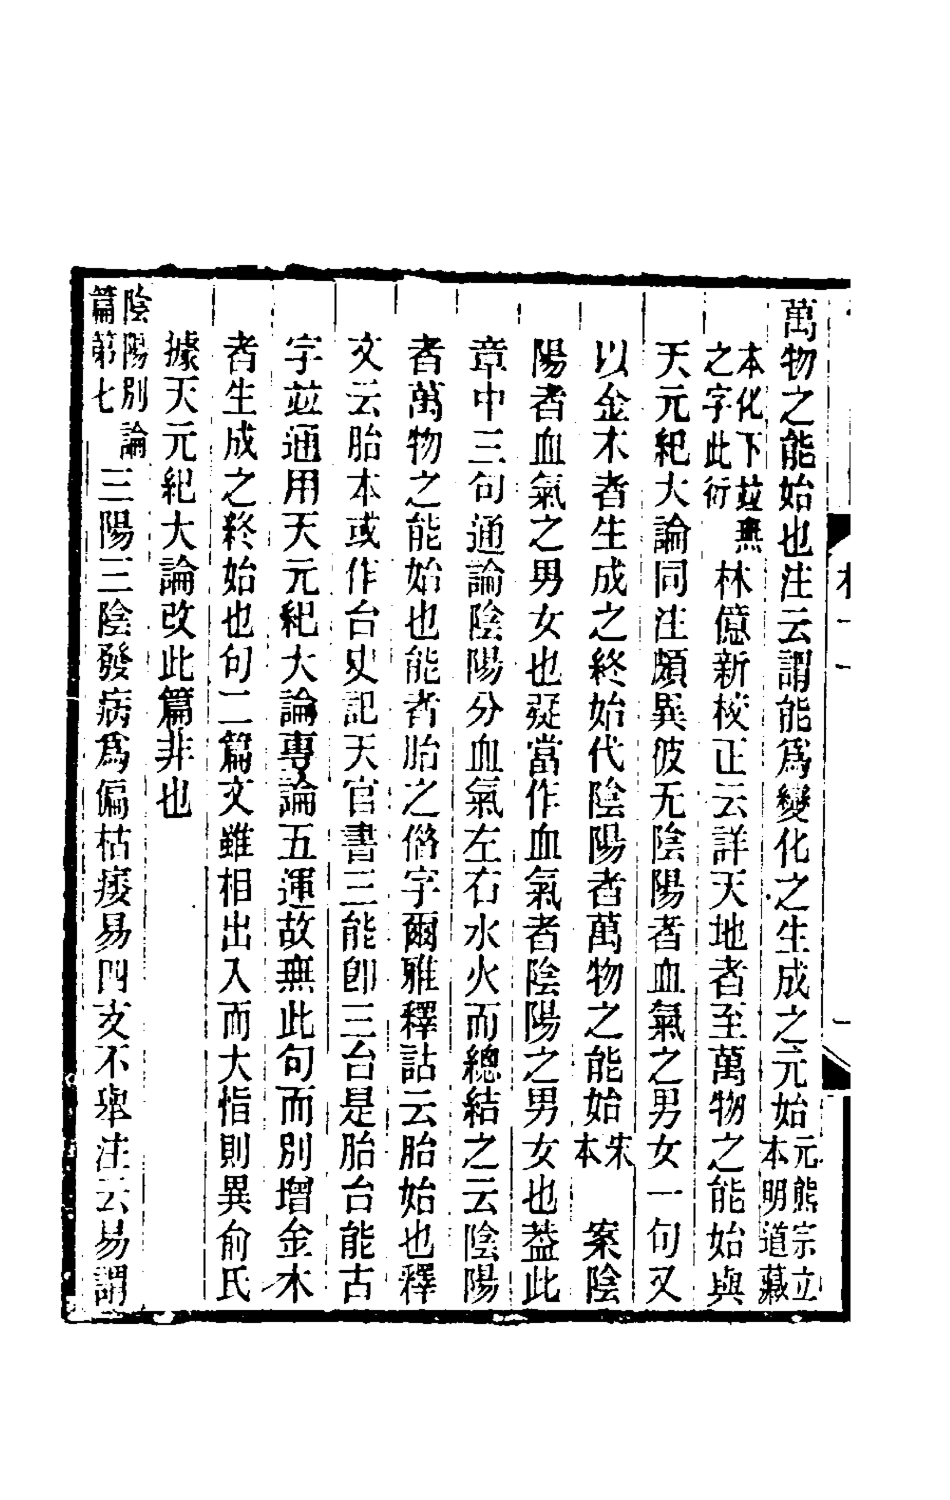 萬物之能始也注云謂能爲變化之生成之元始元熊宗立本明道藏
本化下並無之字此衍 林億新校正云詳天地者至萬物之能始與
天元紀大論同注頗異彼无陰陽者血氣之男女一句又
以金木者生成之終始代陰陽者萬物之能始宋本 案陰
陽者血氣之男女也疑當作血氣者陰陽之男女也葢此
章中三句通論陰陽分血氣左右水火而總結之云陰陽
者萬物之能始也能者胎之借字爾雅釋詁云胎始也釋
文云胎本或作台史記天官書三能卽三台是胎台能古
字並通用天元紀大論專論五運故無此句而別增金木
者生成之終始也句二篇文雖相出入而大恉則異俞氏
據天元紀大論改此篇非也
陰陽別論篇第七 三陽三陰發病爲偏枯痿易四支不舉注云易謂